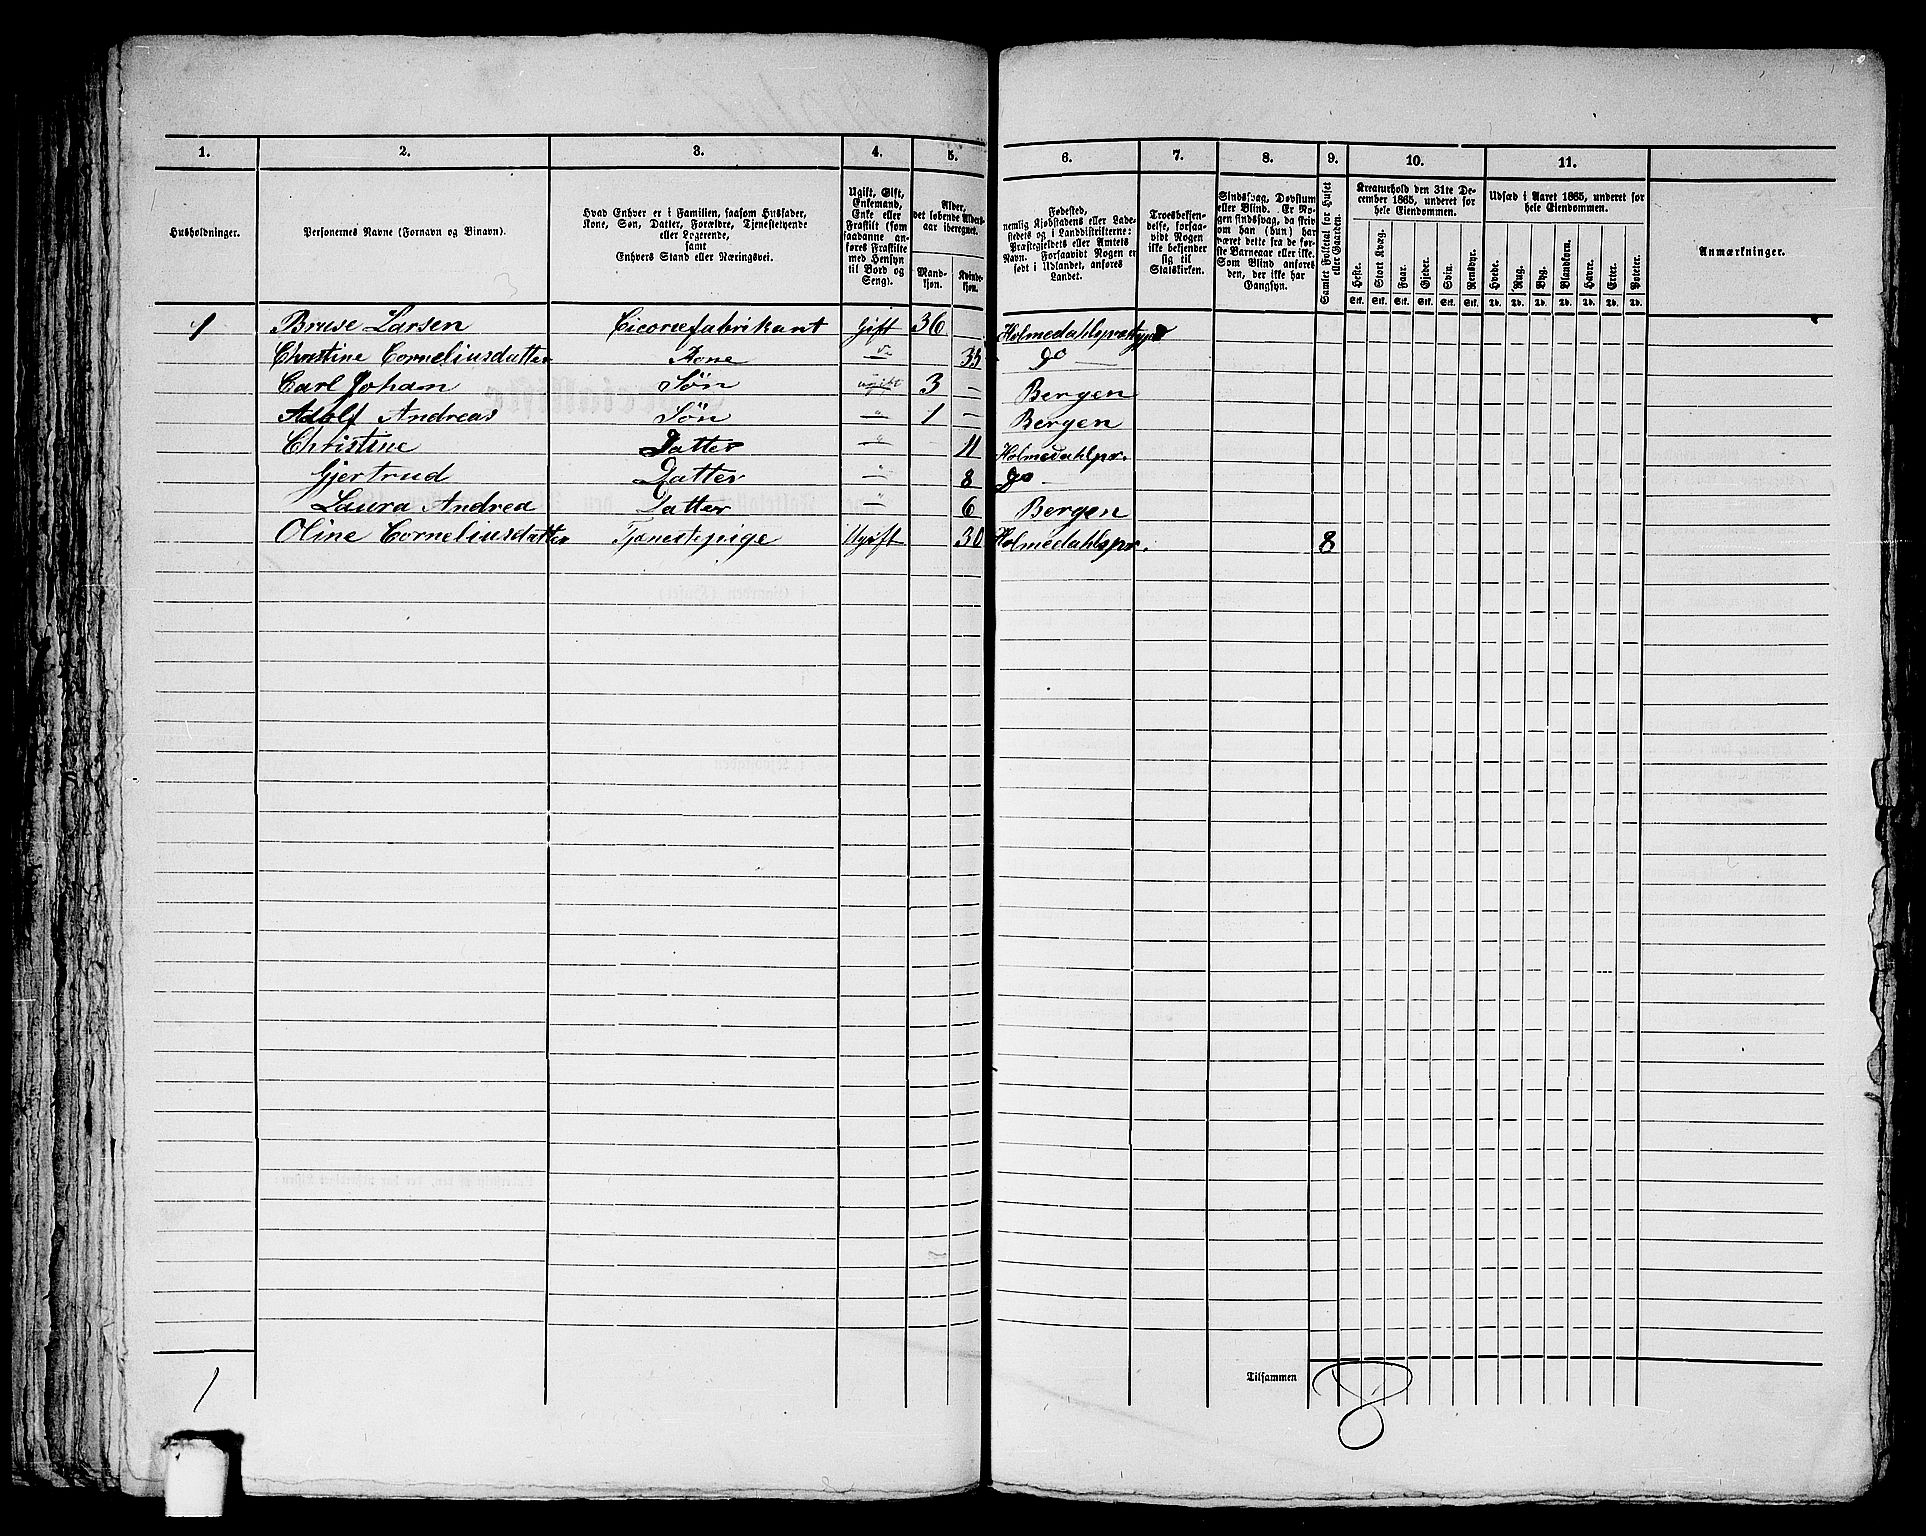 1. 2. 3. 4. 5. 6. 7. 8. 9. 10. 11.
Husholdninger.
Personernes Navne (Fornavn og Binavn).
Hvad Enhver er i Familien, saasom Husfader,
Kone, Søn, Datter, Forældre, Tjenestetyende
eller Logerende,
samt
Enhvers Stand eller Næringsvei.
Ugift, Gift,
Enkemand,
Enke eller
Fraskilt (som
saadanne an-
føres Fraskilte
med Hensyn
til Bord og
Seng).
Alder,
det løbende Alders-
aar iberegnet.
Mand-
kjøn.
Kvinde-
kjøn.
Fødested,
nemlig Kjøbstadens eller Lade-
stedets og i Landdistrikterne:
Præstegjeldets eller Amtets
Navn. Forsaavidt Nogen er
født i Udlandet, anføres
Landet.
Troesbekjen-
delse, forsaa-
vidt Nogen
ikke bekjender
sig til
Statskirken.
Sindssvag, Døvstum
eller Blind. Er No-
gen sindssvag, da skrives
om han (hun) har
været dette fra de før-
ste Barneaar eller ikke.
Som Blind anføres
den, der ikke har
Gangsyn.
Samlet Folketal for Huset
eller Gaarden.
Kreaturhold den 31te De-
cember 1865, underet for
hele Eiendommen.
Heste. Stort Kvæg. Faar. Gjeder. Svin. Rensdyr.
Stk. Stk. Stk. Stk. Stk. Stk.
Udsæd i Aaret 1865, underet for
hele Eiendommen.
Hvede. Rug. Byg. Blandkorn. Havre. Erter. Poteter.
Td. Td. Td. Td. Td. Td. Td.
Anmærkninger.
1 Brese Larsen Cicoriefabrikant Gift 36 Holmedahlsprætgj
Christine Corneliusdatter Kone do 35 do
Carl Johan Søn ugift 3 — Bergen
Adolf Andreas Søn " 1 — Bergen
Christine Datter " 11 Holmedahlpr.
Gjertrud Datter " 8 do
Laura Andrea Datter " 6 Bergen
Oline Corneliusdatter Tjenestepige Ugift 30 Holmedahlspr. 8
Tilsammen 8
1